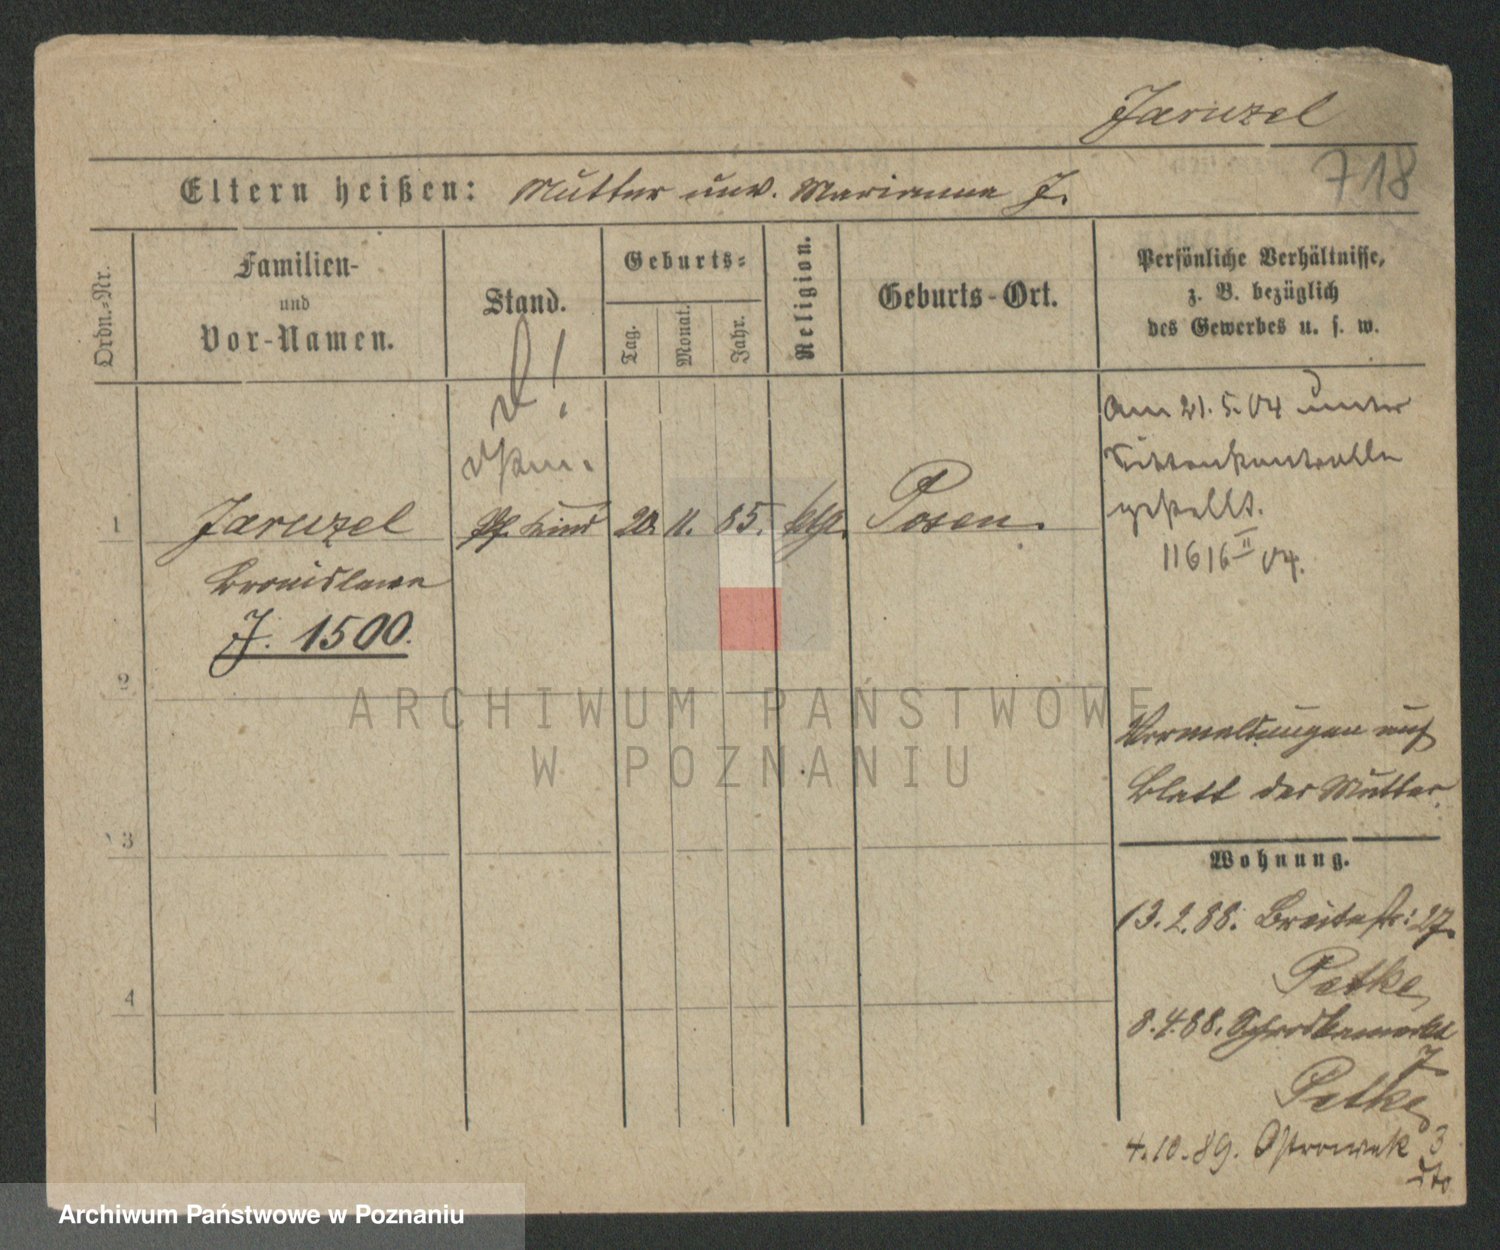 Jaruzel
718
Eltern heißen: Mutter unv. Marianna J.
Ordn.-Nr.
Familien-
und
Vor-Namen.
Stand.
Geburts-
Tag.
Monat.
Jahr.
Religion.
Geburts-Ort.
Persönliche Verhältnisse,
z. B. bezüglich
des Gewerbes u. s. w.
Am 21.5.04 unter
Sittenkontrolle
gestellt.
11616 II 04.
1 Jaruzel Pf. Kind 20. 11. 85. kth. Posen.
Bronislawa
J. 1500.
2
3
4
Vermeldungen auf
Blatt der Mutter.
Wohnung.
13.2.88. Breitestr: 27.
Petke
8.4.88. Schrodkamarkt
7
Petke
4.10.89. Ostrowek 3
dto
ARCHIWUM PAŃSTWOWE
W POZNANIU
Archiwum Państwowe w Poznaniu